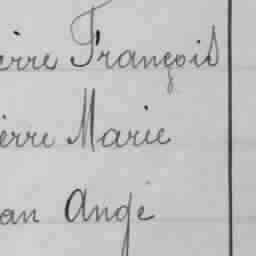 ierre François
ierre Marie
ean Ange